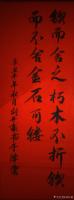 锲而舍之朽木不折锲
而不舍金石可镂